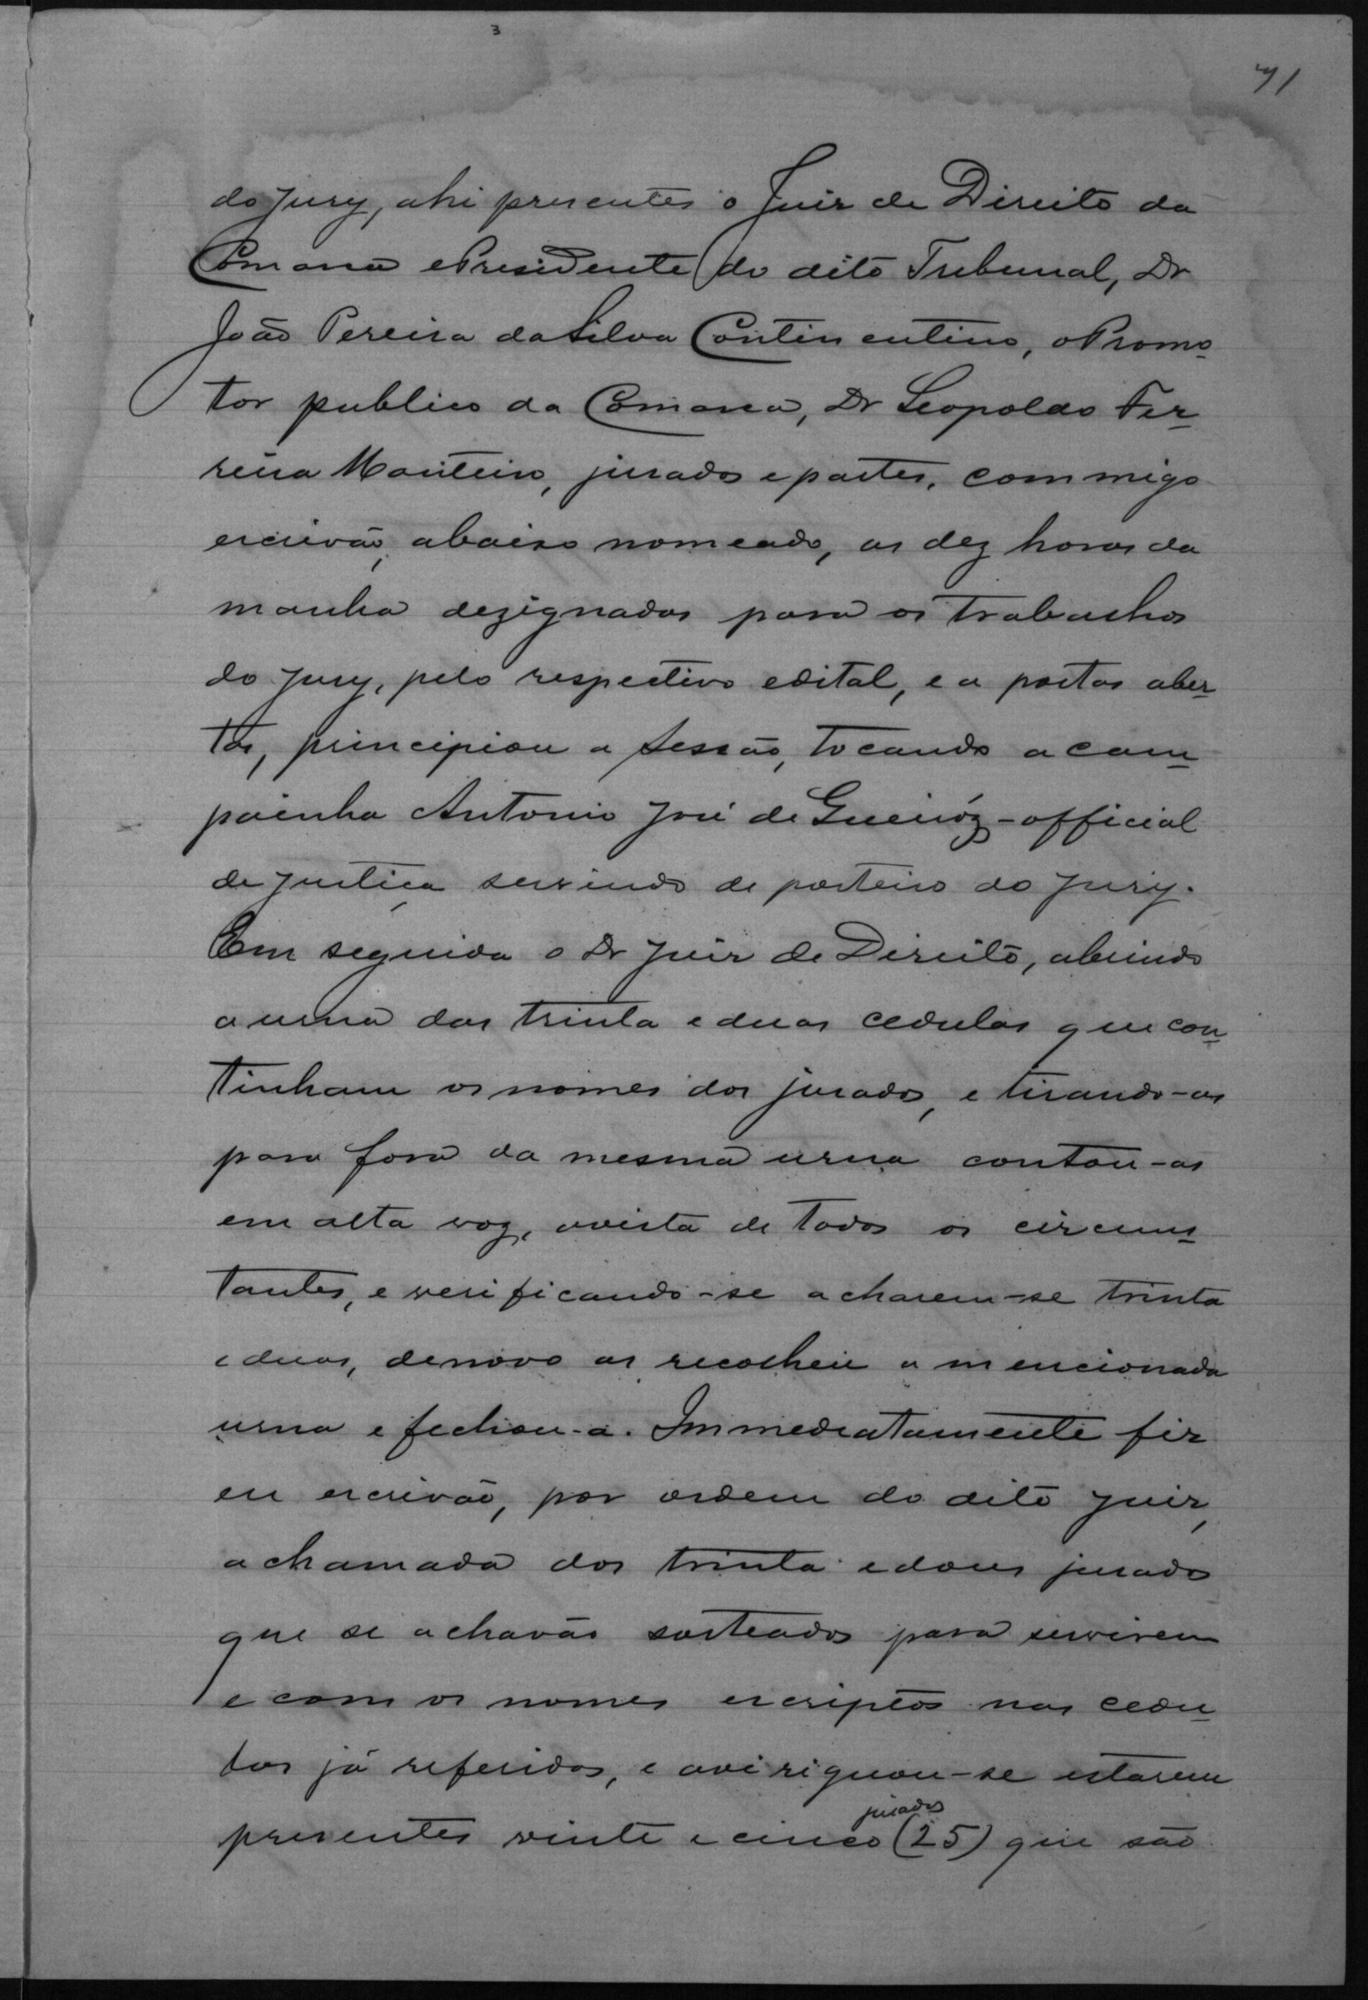 3
71
do Jury, ahi presentes o Juiz de Direito da
Comarca e Presidente do dito Tribunal, Dr
João Pereira da Silva Continentino, o Promo-
tor publico da Comarca, Dr Leopoldo Fer-
reira Monteiro, jurados e partes, commigo
escrivão, abaixo nomeado, as dez horas da
manhã dezignadas para os trabalhos
do Jury, pelo respectivo edital, e a portas aber-
tas, principiou a sessão, tocando a cam-
painha Antonio José de Queiróz - official
de justiça servindo de porteiro do Jury.
Em seguida o Dr Juiz de Direito, abrindo
a urna das trinta e duas cedulas que con-
tinham os nomes dos jurados, e tirando-as
para fora da mesma urna contou-as
em alta voz, avista de todos os circuns-
tantes, e verificando-se acharem-se trinta
e duas, denovo as recolheu a mencionada
urna e fechou-a. Immediatamente fiz
eu escrivão, por ordem do dito Juiz,
a chamada dos trinta e dous jurados
que se achavão sorteados para servirem
e com os nomes escriptos nas cedu-
las já referidas, e aviriguou-se estarem
presentes vinte e cinco (25) jurados que são